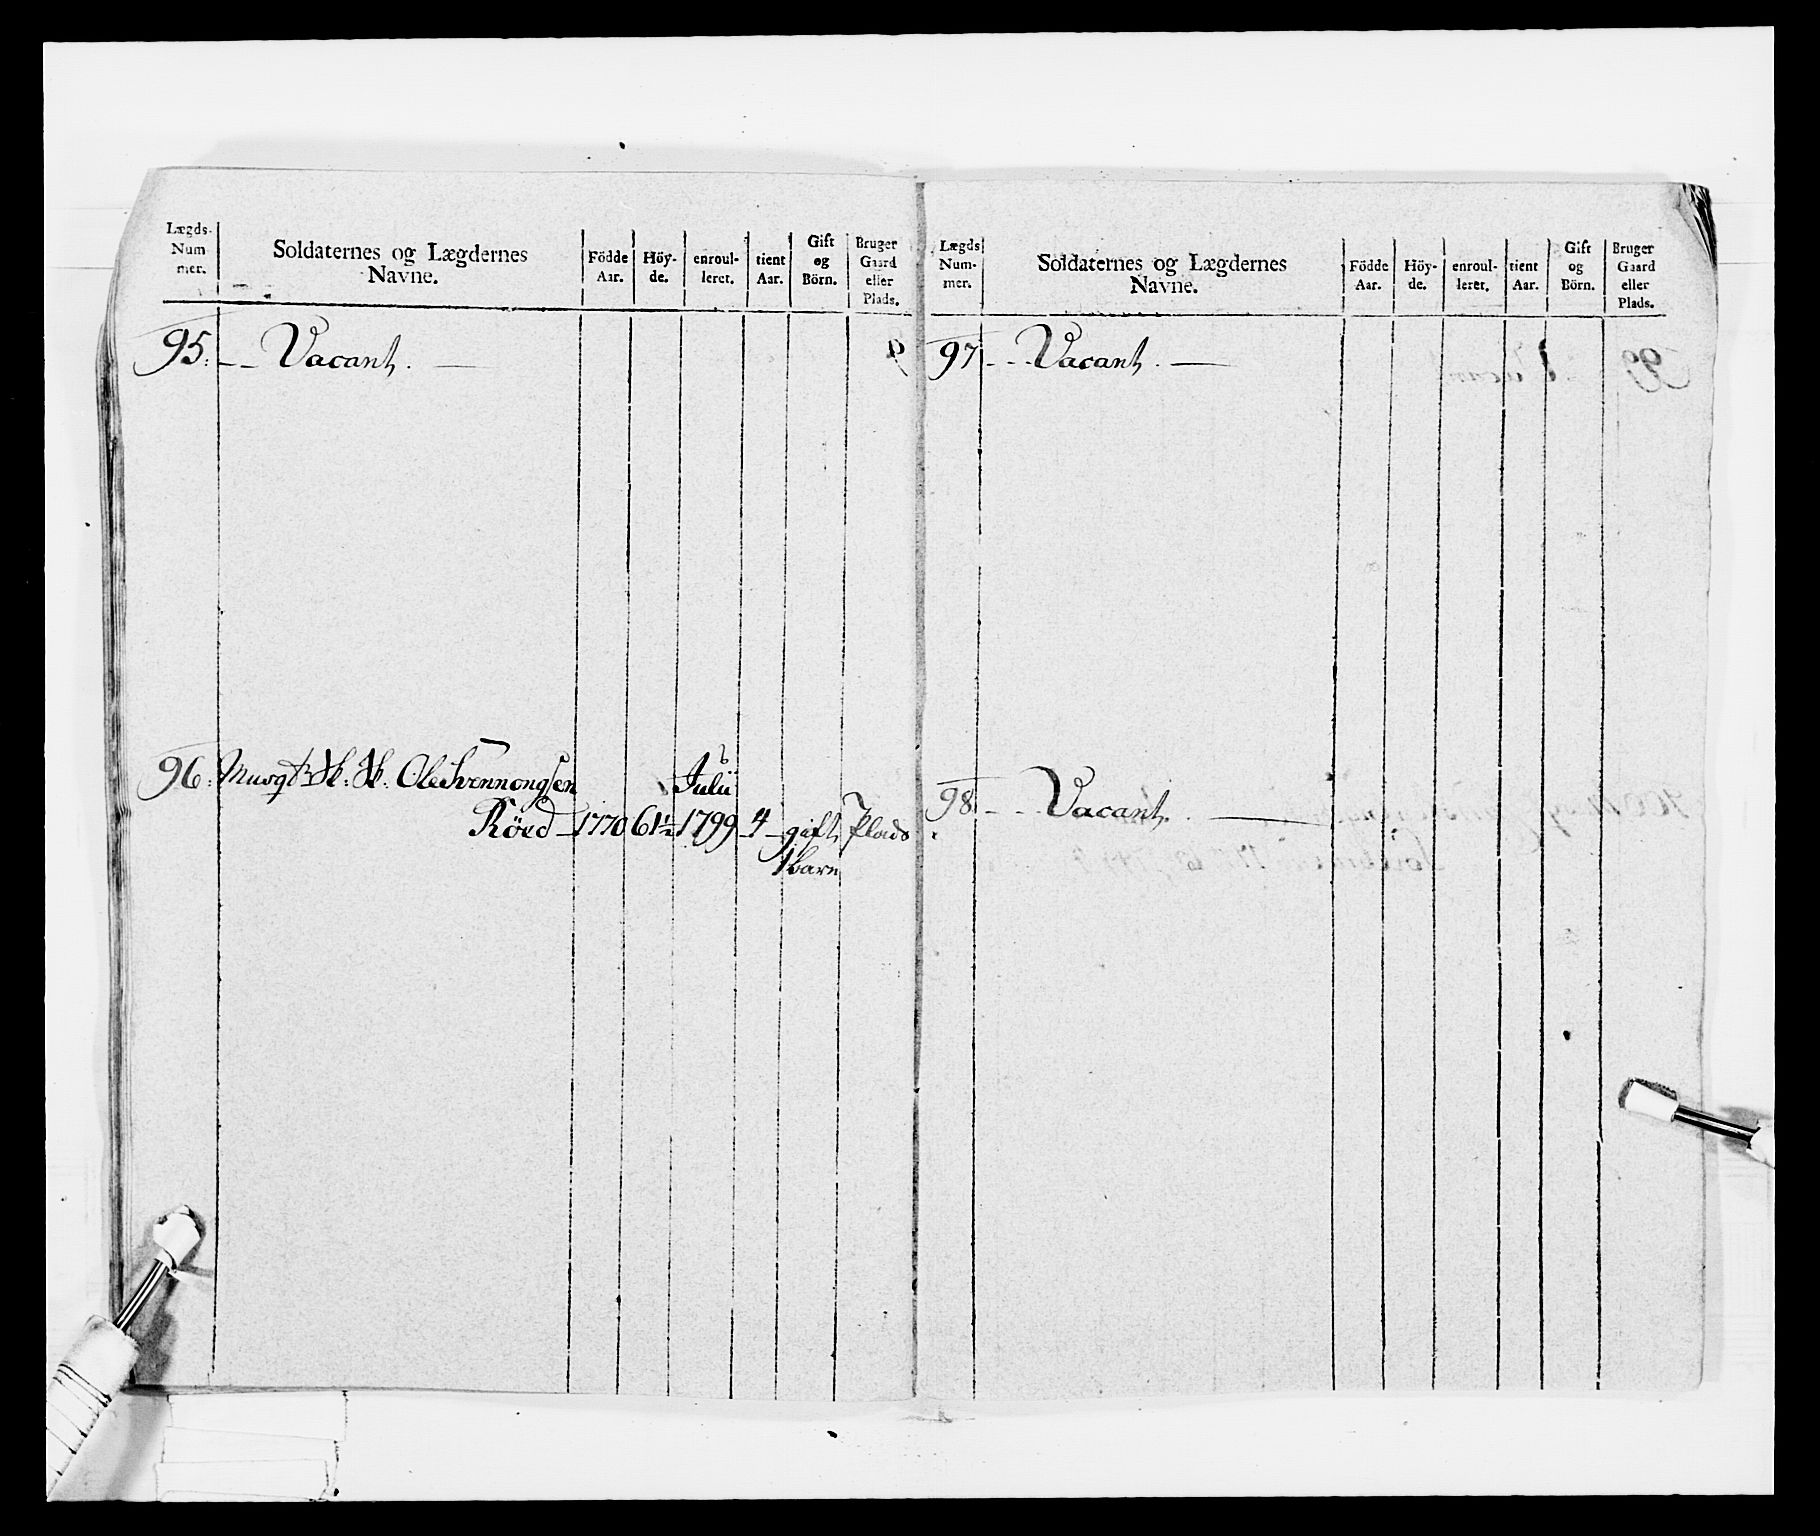 Lægds- Num mer. Soldaternes og Lægdernes Navne. Födde Aar. Höy- de. enroul- leret. tient Aar. Gift og Börn. Bruger Gaard eller Plads.
95. Vacant.
96. Musqt Ole Svennongsen Julii
Röed 1770 61½ 1799 4 gift Plads
1 barn
Lægds Num- mer. Soldaternes og Lægdernes Navne. Födde Aar. Höy- de. enroul- leret. tient Aar. Gift og Börn. Bruger Gaard eller Plads.
97 Vacant.
98. Vacant.